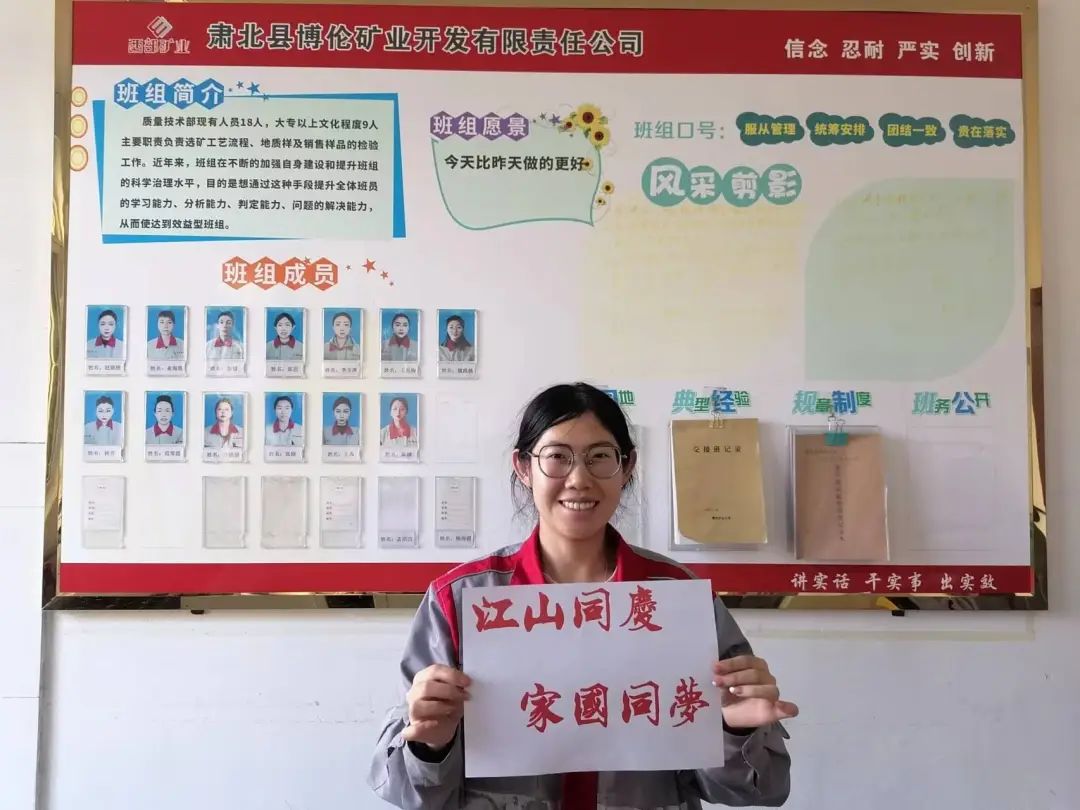 西部矿业
肃北县博伦矿业开发有限责任公司
信念 忍耐 严实 创新
班组简介
质量技术部现有人员18人，大专以上文化程度9人
主要职责负责选矿工艺流程、地质样及销售样品的检验
工作。近年来，班组在不断的加强自身建设和提升班组
的科学治理水平，目的是想通过这种手段提升全体班员
的学习能力、分析能力、判定能力、问题的解决能力，
从而使达到效益型班组。
班组愿景
今天比昨天做的更好
班组口号：
服从管理 统筹安排 团结一致 贵在落实
风采剪影
班组成员
地
典型经验
规章制度
班务公开
交接班记录
讲实话 干实事 出实效
江山同慶
家國同夢